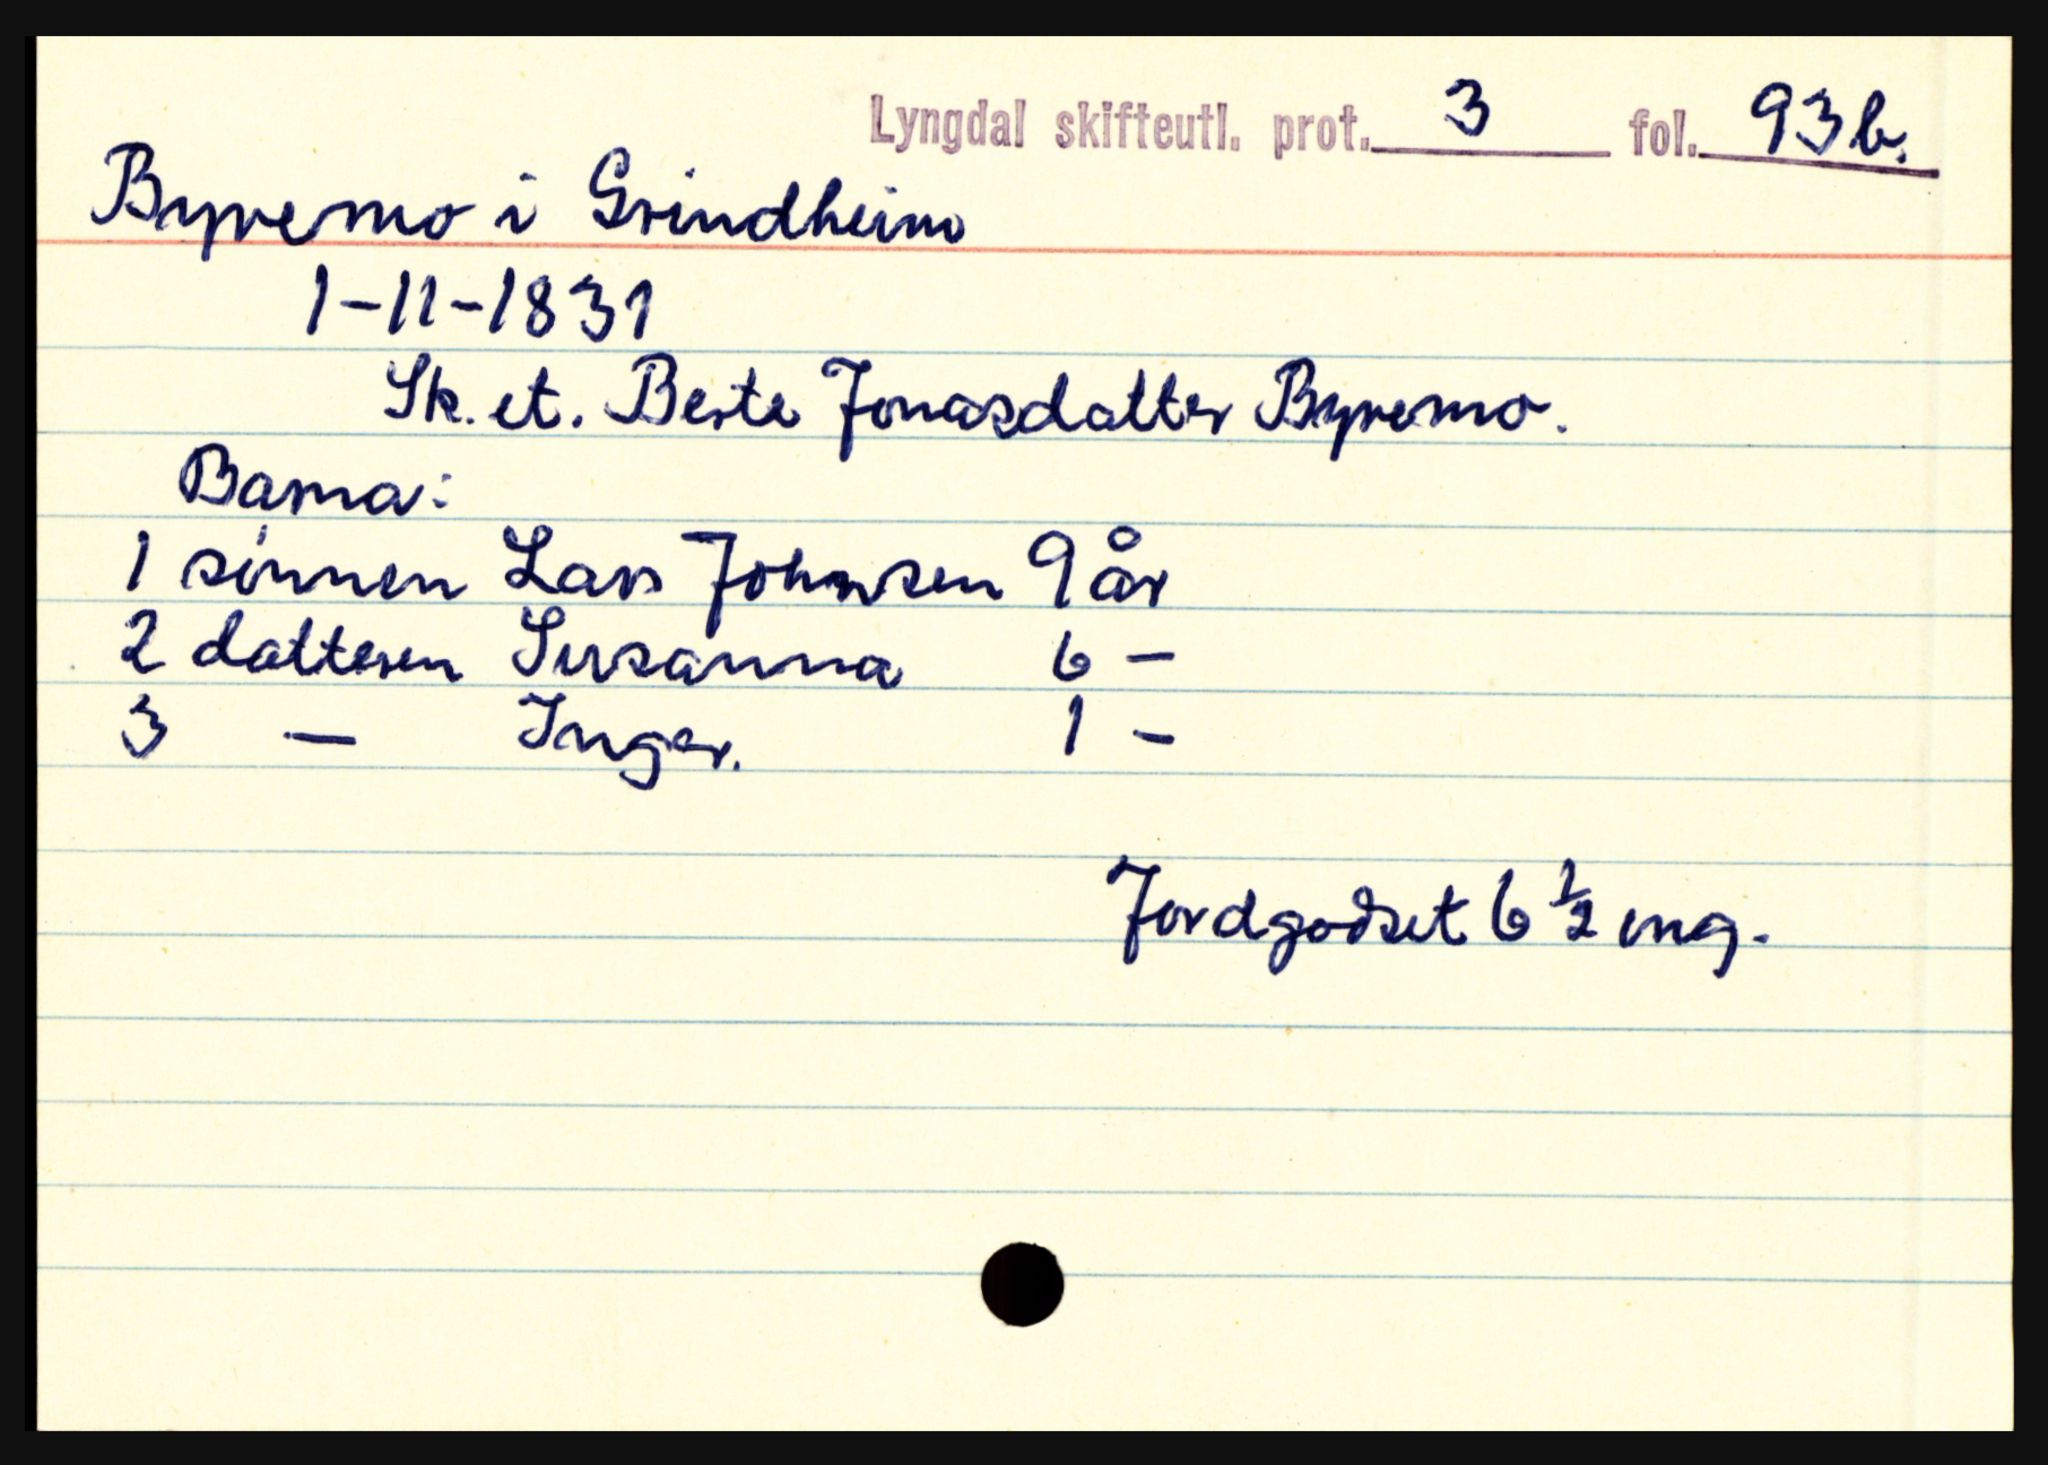 Lyngdal skifteutl. prot. 3 fol. 93b.
Byremo i Grindheim
1-11-1831
Sk. et. Berte Jonasdatter Byremo.
Barna:
1 sønnen Lars Johnsen 9 år
2 datteren Susanna 6 —
3 — Inger. 1 —
Jordgodset 6 ½ eng.